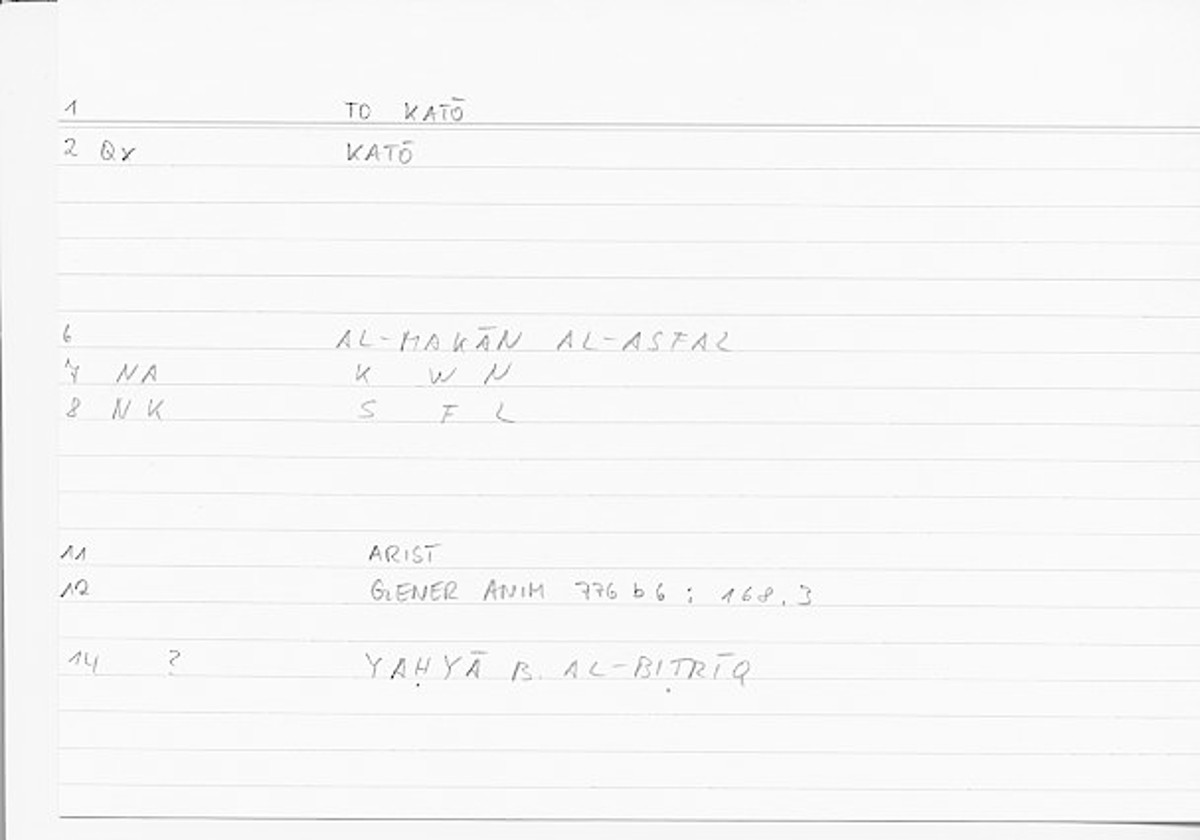 1 TO KATŌ
2 Qx KATŌ
6 AL-MAKĀN AL-ASFAL
7 NA K W N
8 NK S F L
11 ARIST
12 GENER ANIM 776 b 6 ; 168.3
14 ? YAḤYĀ B. AL-BIṬRĪQ